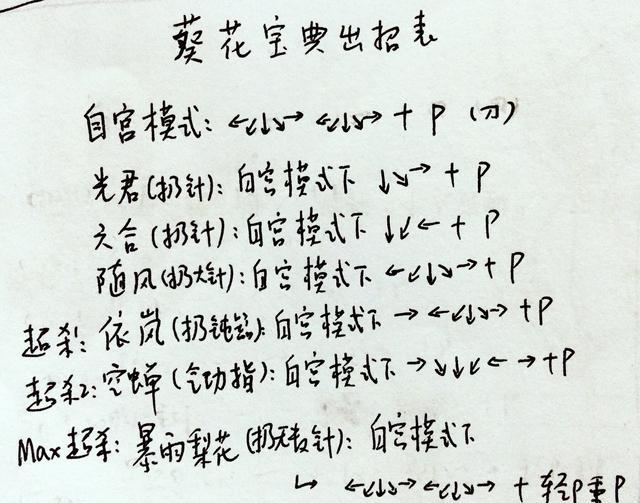 葵花宝典出招表
自宫模式: ←↙↓↘→ ←↙↓↘→ + P (刀)
光君(扔针): 自宫模式下 ↓↘→ + P
六合(扔针): 自宫模式下 ↓↙← + P
随风(扔大针): 自宫模式下 ←↙↓↘→ + P
超杀: 依岚(扔): 自宫模式下 → ←↙↓↘→ + P
超杀2: 空蝉(指): 自宫模式下 →↘↓↙← → + P
Max超杀: 暴雨梨花(扔无数针): 自宫模式下
↳ ←↙↓↘→ ←↙↓↘→ + 轻P重P